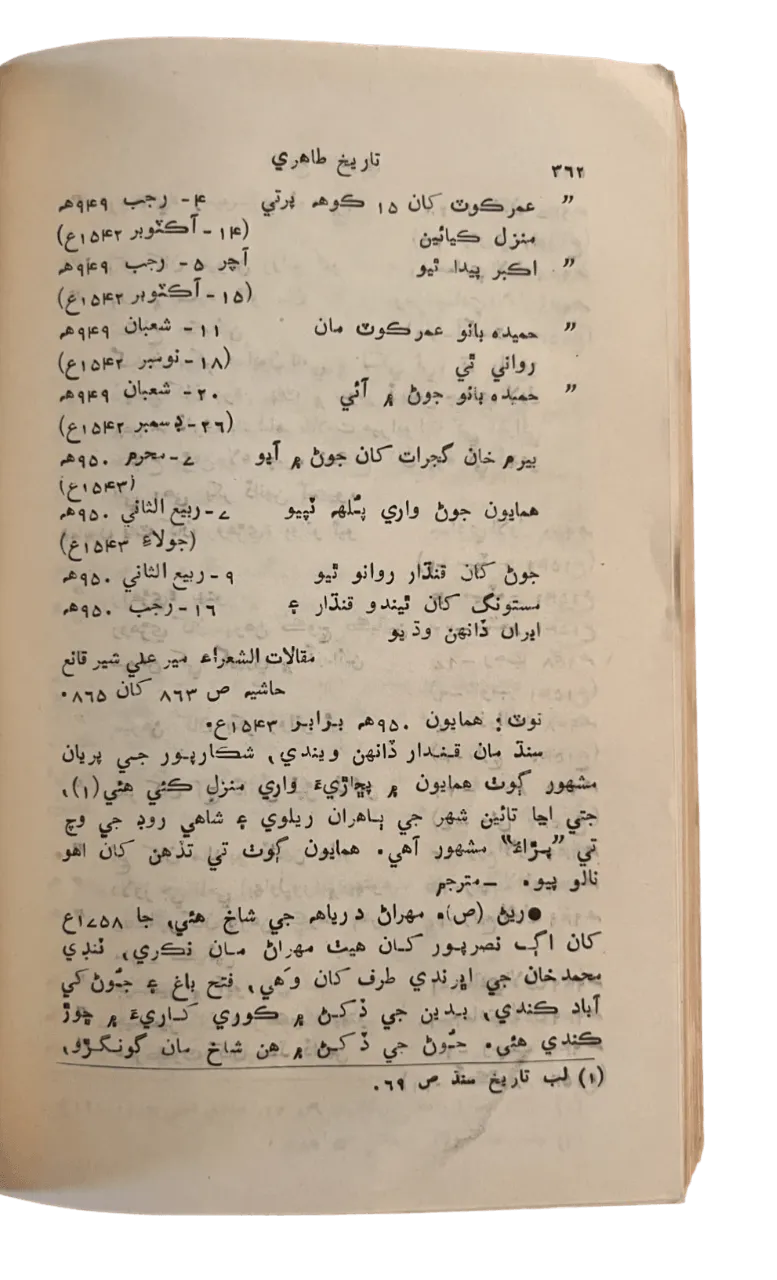 تاريخ طاهري
۳٦۲
” عمرڪوٽ کان ۱۵ ڪوهہ پرتي ۴- رجب ۹۴۹هہ
منزل ڪيائين (۱۴ - آڪٽوبر ۱۵۴۲ع)
” اڪبر پيدا ٿيو آچر ۵ - رجب ۹۴۹هہ
(۱۵ - آڪٽوبر ۱۵۴۲ع)
” حميده بانو عمرڪوٽ مان ۱۱ - شعبان ۹۴۹هہ
رواني ٿي (۱۸ - نومبر ۱۵۴۲ع)
” حميده بانو جوڻ ۾ آئي ۲۰ - شعبان ۹۴۹هہ
(۲٦ - ڊسمبر ۱۵۴۲ع)
بيرم خان گجرات کان جوڻ ۾ آيو ۷ - محرم ۹۵۰هہ
(۱۵۴۳ع)
همايون جوڻ واري پُلهہ ٽپيو ۷ - ربيع الثاني ۹۵۰هہ
(جولاءِ ۱۵۴۳ع)
جوڻ کان قنڌار روانو ٿيو ۹ - ربيع الثاني ۹۵۰هہ
مستونگ کان ٿيندو قنڌار ۽ ۱٦ - رجب ۹۵۰هہ
ايران ڏانهن وڌيو
مقالات الشعراء مير علي شير قانع
حاشيہ ص ۸٦۳ کان ۸٦۵.
نوٽ: همايون ۹۵۰هہ برابر ۱۵۴۳ع.
سنڌ مان قندار ڏانهن ويندي، شڪارپور جي پريان
مشهور ڳوٺ همايون ۾ پڇاڙيءَ واري منزل ڪئي هئي(۱)،
جتي اڃا تائين شهر جي ٻاهران ريلوي ۽ شاهي روڊ جي وچ
تي ”پڙاءُ“ مشهور آهي. همايون ڳوٺ تي تڏهن کان اهو
نالو پيو. —مترجم
●ريڻ (ص). مهراڻ درياهہ جي شاخ هئي، جا ۱۷۵۸ع
کان اڳ نصرپور کان هيٺ مهراڻ مان نڪري، ٽنڊي
محمدخان جي اڀرندي طرف کان وَهي، فتح باغ ۽ جُوڻ کي
آباد ڪندي، بدين جي ڏکڻ ۾ ڪوري کاريءَ ۾ ڇوڙ
ڪندي هئي. جُوڻ جي ڏکڻ ۾ هن شاخ مان گونگڙو،
(۱) لب تاريخ سنڌ ص ٦۹.